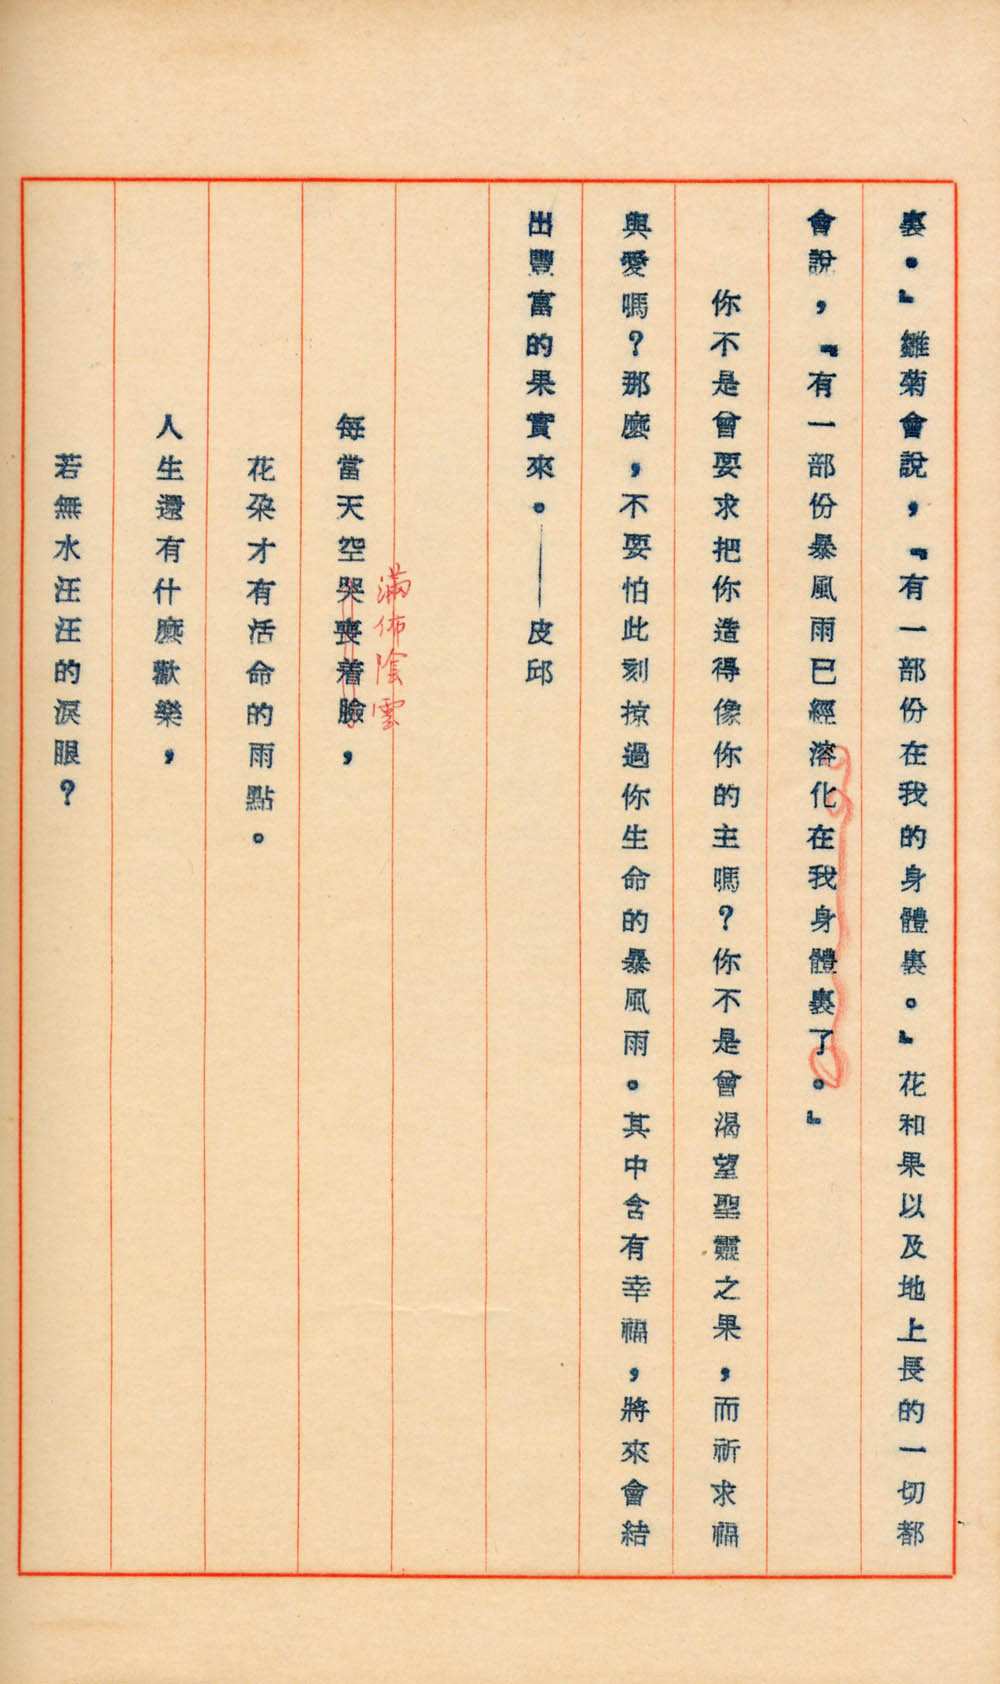 裏。』雛菊會說，『有一部份在我的身體裏。』花和果以及地上長的一切都
會說，『有一部份暴風雨已經溶化在我身體裏了。』
你不是曾要求把你造得像你的主嗎？你不是曾渴望聖靈之果，而祈求福
與愛嗎？那麼，不要怕此刻掠過你生命的暴風雨。其中含有幸福，將來會結
出豐富的果實來。——皮邱
滿佈陰雲
每當天空哭喪着臉，
花朶才有活命的雨點。
人生還有什麼歡樂，
若無水汪汪的淚眼？